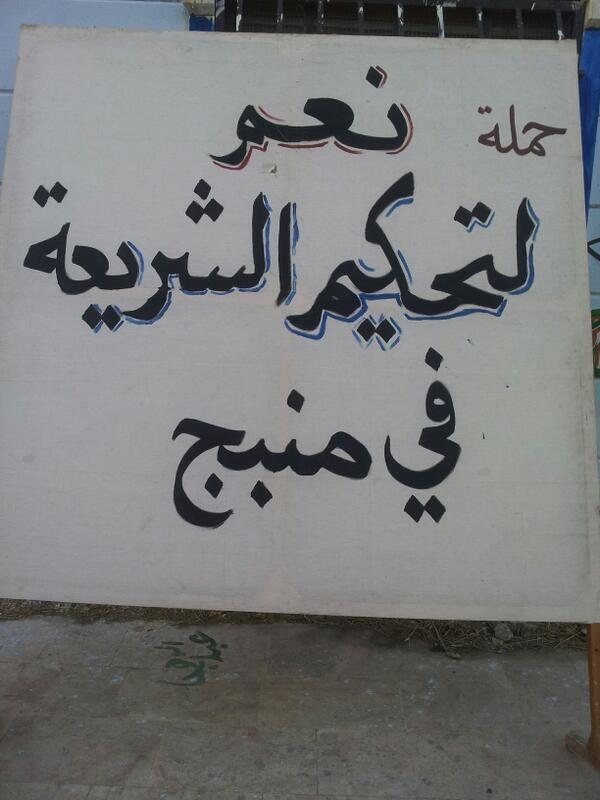 حملة
نعم
لتحكيم الشريعة
في منبج